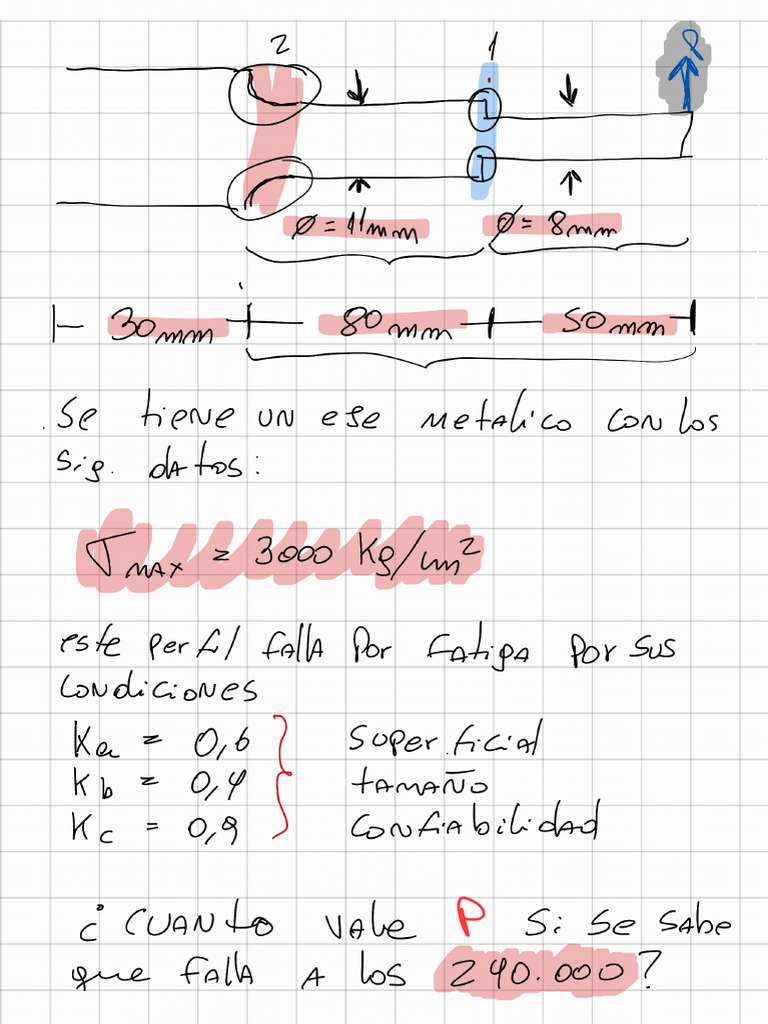 2
1
P
ø = 11mm
ø = 8mm
30mm
80mm
50mm
.Se tiene un eje metalico con los
sig. datos:
σMAX = 3000 Kg/cm²
este perfil falla por fatiga por sus
condiciones
Ka = 0,6 superficial
Kb = 0,4 tamaño
Kc = 0,9 confiabilidad
¿ CUANto vale P si se sabe
que falla A los 240.000?